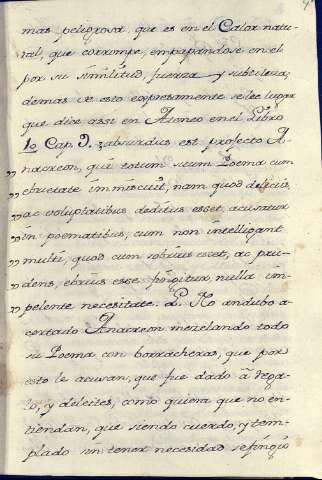 mas peligrosa, que es en el Calor natu-
ral, que corrompe, empapandose en el
por su similitud, fuerza y subtileza,
demas de esto expresamente se lee lugar
que dize assi en Ateneo en el Libro
10 Cap. 9. absurdus est profecto A-
nacreon, qui totum suum Poema cum
ebrietate immiscuit, nam quod delicijs,
ac voluptatibus deditus esset, acusatur
in poematibus, cum non intelligant
multi, quod cum sobrius esset, ac pru-
dens, ebrius esse fingitur, nulla im-
pelente necesitate. No andubo a-
certado Anacreon mezclando todo
su Poema con borracheras, que por
esto le acusan, que fue dado à rega-
lo, y deleites, como quiera que no en-
tiendan, que siendo cuerdo, y tem-
plado sin tener necesidad se fingio